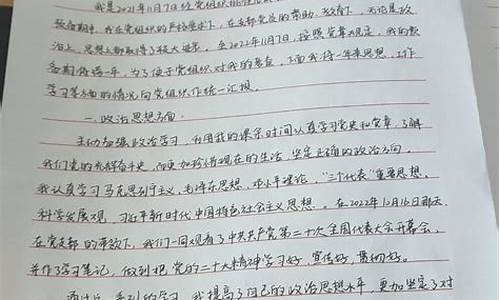 我是2021年11月7日经党组织批准
预备期中,我在党组织的严格要求下,在支部党员的帮助、教育下,无论是政
治上、思想上都取得了较大进步。至2022年11月7日,按照党章规定,我的
备期将满一年。为了便于党组织对我的考查,下面我将一年来思想、工作
学习等方面的情况向党组织作统一汇报。
一、政治思想方面。
主动加强政治学习,利用我的课余时间认真学习党史和党章,了解
我们党的光辉奋斗史,从而更加珍惜现在的生活,坚定正确的政治方向。
我认真学习马克思列宁主义,毛泽东思想,邓小平理论,“三个代表”重要思想,
科学发展观,习近平新时代中国特色社会主义思想。在2022年10月16日那天,
在党支部的带领下,我们一同观看了中共共产党第二十次全国代表大会开幕会,
并作了学习笔记,做到把党的二十大精神学习好、宣传好、贯彻好。
通过这一系列的学习,我提高了自己的政治思想水平,更加坚定了对